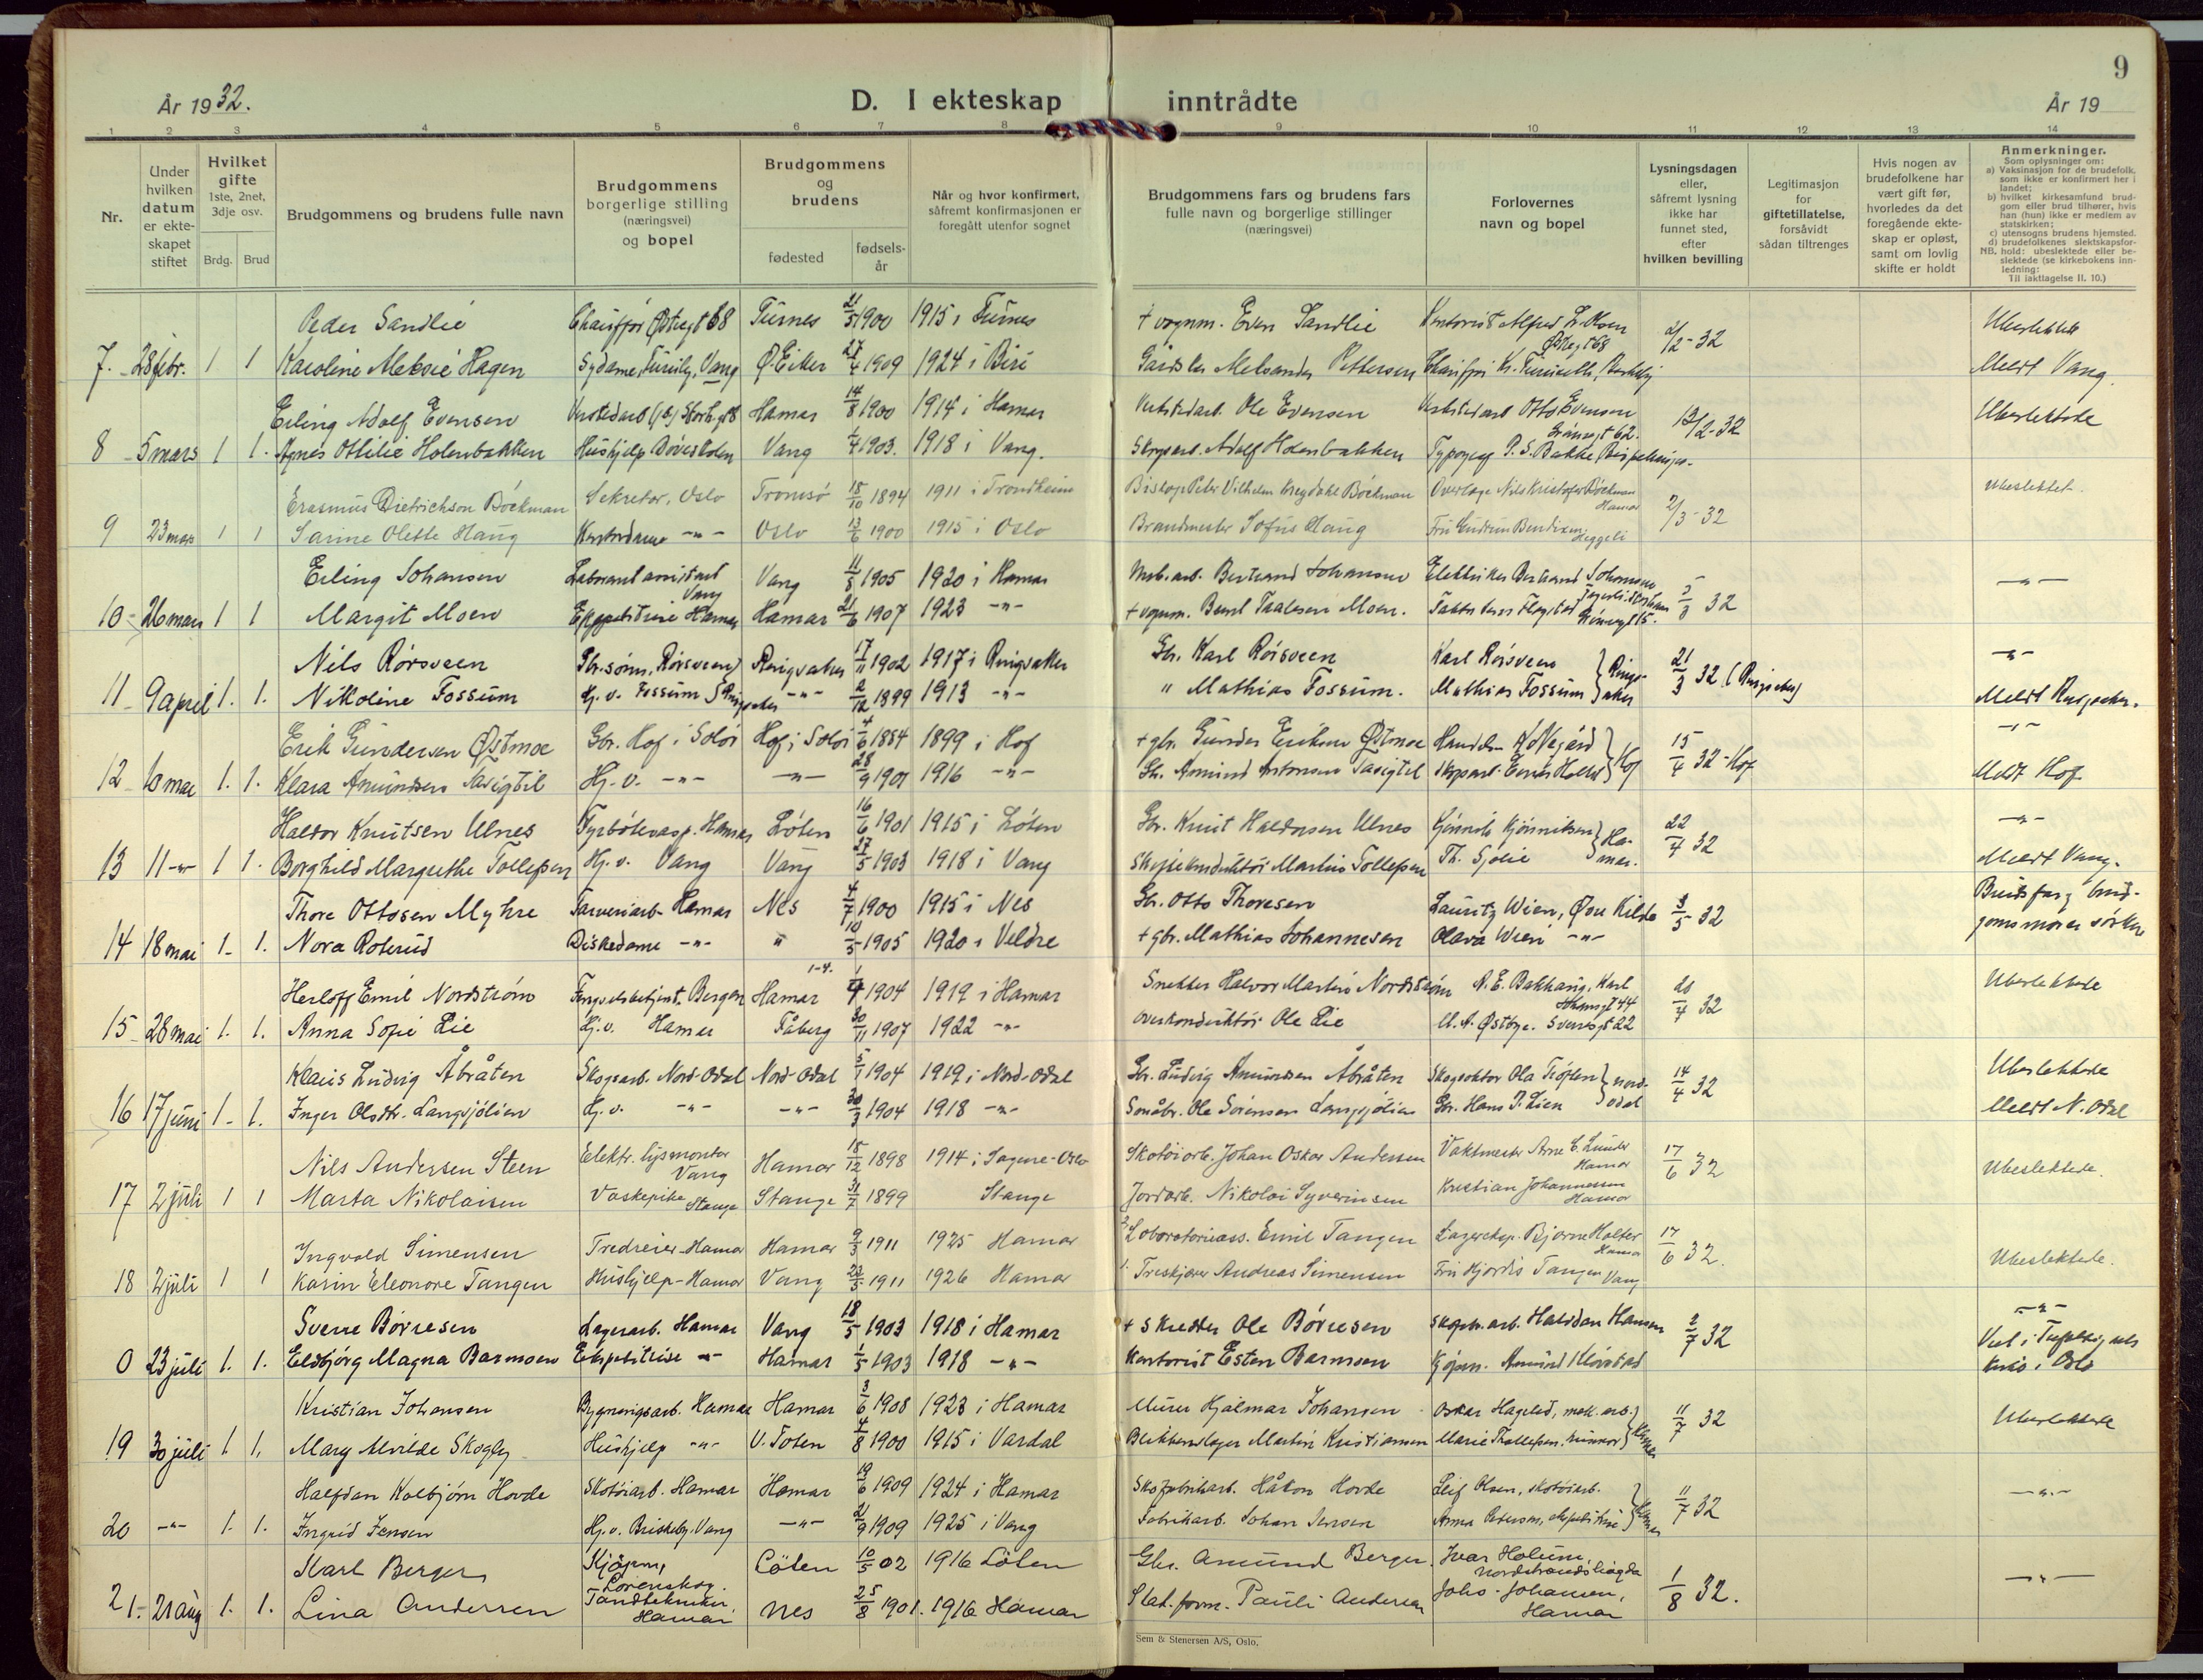 9
År 1932. D. I ekteskap inntrådte År 19
1 2 3 4 5 6 7 8 9 10 11 12 13 14
Nr.
Under hvilken datum er ekteskapet stiftet
Hvilket gifte 1ste, 2net, 3dje osv.
Brdg. Brud
Brudgommens og brudens fulle navn
Brudgommens borgerlige stilling (næringsvei) og bopel
Brudgommens og brudens
fødested fødselsår
Når og hvor konfirmert, såfremt konfirmasjonen er foregått utenfor sognet
Brudgommens fars og brudens fars fulle navn og borgerlige stillinger (næringsvei)
Forlovernes navn og bopel
Lysningsdagen eller, såfremt lysning ikke har funnet sted, efter hvilken bevilling
Legitimasjon for giftetillatelse, forsåvidt sådan tiltrenges
Hvis nogen av brudefolkene har vært gift før, hvorledes da det foregående ekteskap er opløst, samt om lovlig skifte er holdt
Anmerkninger.
Som oplysninger om:
a) Vaksinasjon for de brudefolk, som ikke er konfirmert her i landet;
b) hvilket kirkesamfund brudgom eller brud tilhører, hvis han (hun) ikke er medlem av statskirken;
c) utensogns brudens hjemsted.
d) brudefolkenes slektskapsforhold: ubeslektede eller beslektede (se kirkebokens innledning:
NB.
Til iakttagelse II. 10.)
Peder Sandlie Chauffør Østregt 68 Furnes 21/5 1900 1915 i Furnes + vognm. Even Sandlie Kontorist Alfred L. Olsen 2/2-32 Ubeslektede
7. 28 febr. 1 1 Karoline Aleksie Hagen Sydame, Vang Ø. Eiker 27/4 1909 1924 i Biri Pettersen Meldt Vang.
Erling Adolf Evensen Hamar 14/8 1900 1914 i Hamar Verkstedarb. Ole Evensen Verkstedarb Otto Evensen Grønnegt 62. 12/2-32 Ubeslektede
8 5 mars 1 1. Agnes Ottilie Holenbakken Hushjelp Døveskolen Vang 1/4 1903. 1918 i Vang. Skogsarb. Adolf Holenbakken Typograf P. S. Bakke
Erasmus Dietrichson Böckman Sekretær, Oslo Tromsø 18/10 1894 1911 i Trondheim Biskop Peter Vilhelm Kreydahl Böckman Overlæge Nils Kristofer Böckman Hamar 2/3-32 Ubeslektet.
9 23 mars 1 1 Sarine Olette Haug Kontordame -"- Oslo 13/6 1900 1915 i Oslo Brandmester Sofus Haug Fru Gudrun Bendixen Heggeli
Erling Johansen Laborantassistent Vang Vang 11/8 1905 1920 i Hamar Bertrand Johansen Elektriker Bertrand Johansen 5/3 32 -"-
10 26 mars 1 1 Margit Moen Ekspeditrise Hamar Hamar 21/6 1907 1923 -"- + vognm. Moen. Grønnegt 15.
Nils Rørsveen Gbr.sønn, Rørsveen Ringsaker 17/11 1902 1917 i Ringsaker Gbr. Karl Rørsveen Karl Rørsveen Ringsaker 21/3 32 (Ringsaker) -"-
11 9 april 1. 1. Nikoline Fossum Hj. v. Fossum Ringsaker -"- 2/12 1899 1913 -"- " Mathias Fossum. Mathias Fossum Meldt Ringsaker.
Erik Gundersen Østmoe Gbr. Hof i Solør Hof i Solør 4/6 1884 1899 i Hof + gbr. Gunder Eriksen Østmoe Hof 15/4 32-Hof -"-
12 10 mai 1. 1. Klara Amundsen Hj. v. -"- -"- 28/9 1901 1916 -"- Gbr. Amund Meldt Hof
Haldor Knutsen Ulnes Fyrbøterasp. Hamar Løten 16/6 1901 1915 i Løten Gbr. Knut Haldorsen Ulnes Hamar. 22/4 32 -"-
13 11 -"- 1 1. Borghild Margrethe Tollefsen Hj. v. Vang Vang 27/5 1903 1918 i Vang Martin Tollefsen Th. Sjølie Meldt Vang.
Thore Ottosen Myhre Garveriarb- Hamar Nes 4/7 1900 1915 i Nes Gbr. Otto Thoresen Lauritz Wien, Øvre Kilde 3/5-32 Brudsfar og brudgomsmor er søskn
14 18 mai 1- 1. Nora Roterud Diskedame -"- " 10/3 1905 1920 i Veldre + gbr. Mathias Johannesen Olava Wien -"-
Herloff Emil Nordstrøm Fengselsbetjent. Bergen Hamar 1-4. 1/4 1904 1919 i Hamar Snekker Halvor Martin Nordstrøm N. E. Bakhaug, Karl Johansgt 44 20/4 32 Ubeslektede
15 28 mai 1. 1. Anna Sofie Lie Hj. v. Hamar Fåberg 30/11 1907 1922 -"- Overkonduktør Ole Lie M. A. Østbye. Sverresgt 22
Klaus Ludvig Åbråten Skogsarb. Nord-Odal Nord-Odal 5/1 1904 1919 i Nord-Odal Gbr. Ludvig Amundsen Åbråten Nord-Odal 14/4 32 Ubeslektede
16 17 juni 1- 1. Inger Olsdtr. Langsjølien Hj. v. -"- -"- 30/3 1904 1918 -"- Småbr. Ole Sørensen Langsjølien Gbr. Hans P. Lien Meldt N. Odal
Nils Andersen Steen Elektr. lysmontør Vang Hamar 18/12 1898 1914 i Sagene-Oslo Skotøiarb. Johan Oskar Andersen Vaktmester Arne C. Lunder Hamar 17/6 32 Ubeslektede.
17 2 juli 1 1 Marta Nikolaisen Vaskepike Stange Stange 31/7 1899 Stange Jordarb. Nikolai Syverinsen Kristian Johannessen Hamar
Ingvald Simensen Tredreier-Hamar Hamar 9/3 1911 1925 Hamar 2 Laboratorieass. Emil Tangen Lagereksp. Bjarne Holter Hamar 17/6 32. Ubeslektede.
18 2 juli 1 1 Karin Eleonore Tangen Hushjelp-Hamar Vang 22/5 1911 1926 Hamar 1. Treskjærer Andreas Simensen Fru Hjørdis Tangen Vang
Sverre Børresen Lagerarb. Hamar Vang 18/5 1903 1918 i Hamar + Skredder Ole Børresen Halvdan Hansen 2/7 32 -"-
0 23 juli 1. 1. Eldbjørg Magna Barmoen Ekspeditrise -"- Hamar 1/5 1903 1918 -"- Kontorist Esten Barmoen Kjøpm. Amund Kløvstad Viet i Oslo
Kristian Johansen Bygningsarb. Hamar Hamar 3/6 1908 1923 i Hamar Murer Hjalmar Johansen Oskar Hagelid, mek. arb. Hamar 11/7 32 Ubeslektede
19 30 juli 1 1. Mary Alvilde Skogly Hushjelp -"- V. Toten 4/8 1900 1915 i Vardal Blikkenslager Martin Kristiansen Marie Thollefsen
Halfdan Kolbjørn Hovde Skotøiarb. Hamar Hamar 19/6 1909 1924 i Hamar Skofabrikarb. Håkon Hovde Leif Olsen, skotøiarb. Hamar 11/7 32 -"-
20 -"- 1. 1. Ingrid Jensen Hj. v. Briskeby. Vang -"- 21/9 1909 1925 i Vang Fabrikarb. Johan Jensen Anna Petersen, ekspeditrise
Karl Berger Kjøpm, Lørenskog. Löten 10/5 02 1916 Löten Gbr. Amund Berger. Ivar Holum, Nordstrandshøgda 1/8 32. -"-
21. 21 aug 1. 1. Lina Andersen Tandtekniker, Hamar Nes 25/8 1901. 1916 Hamar Stat. form. Pauli Andersen Johs. Johansen, Hamar
Sem & Stenersen A/S, Oslo.